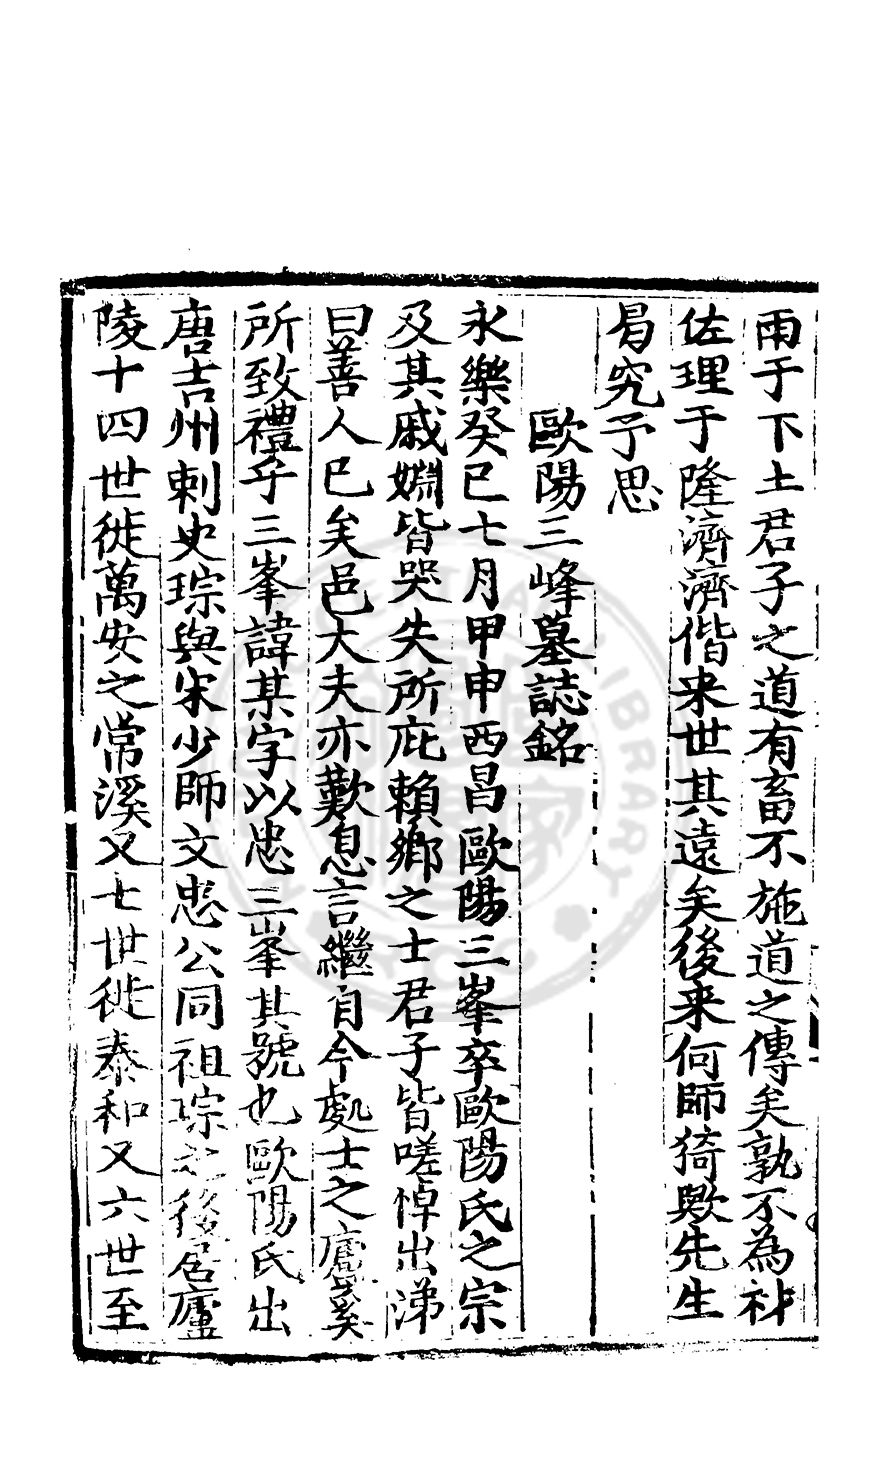 雨于下土君子之道有畜不施道之傳矣孰不為
佐理于隆濟濟偕来世其遠矣後来何師猗歟先生
曷究予思
歐陽三峰墓誌銘
永樂癸巳七月甲申西昌歐陽三峯卒歐陽氏之宗
及其戚婣皆哭失所庇賴鄉之士君子皆嗟悼出涕
曰善人已矣邑大夫亦歎息言繼自今處士之廬奚
所致禮乎三峯諱某字以忠三峯其號也歐陽氏出
唐吉州刺史琮與宋少師文忠公同祖琮之後居廬
陵十四世徙萬安之常溪又七世徙泰和又六世至